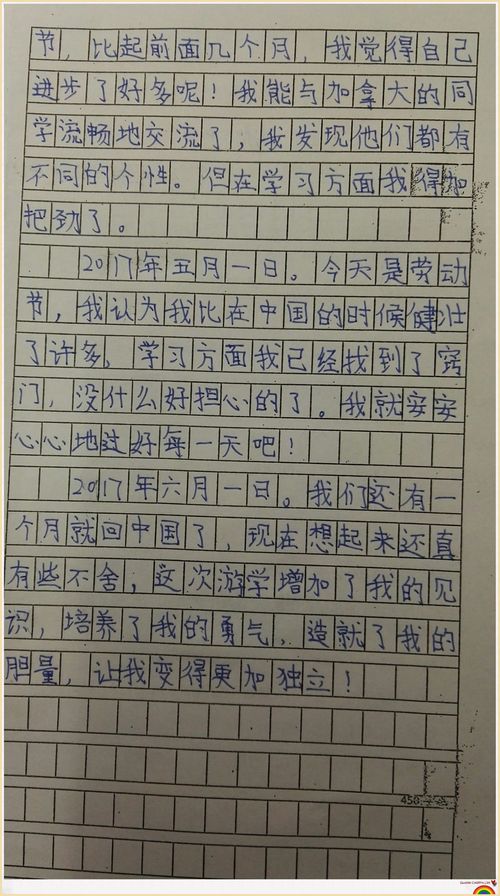 节，比起前面几个月，我觉得自己
进步了好多呢！我能与加拿大的同
学流畅地交流了，我发现他们都有
不同的个性。但在学习方面我得加
把劲了。
2017年五月一日。今天是劳动
节，我认为我比在中国的时候健壮
了许多，学习方面我已经找到了窍
门，没什么好担心的了。我就安安
心心地过好每一天吧！
2017年六月一日。我们还有一
个月就回中国了，现在想起来还真
有些不舍，这次游学增加了我的见
识，培养了我的勇气，造就了我的
胆量，让我变得更加独立！
450